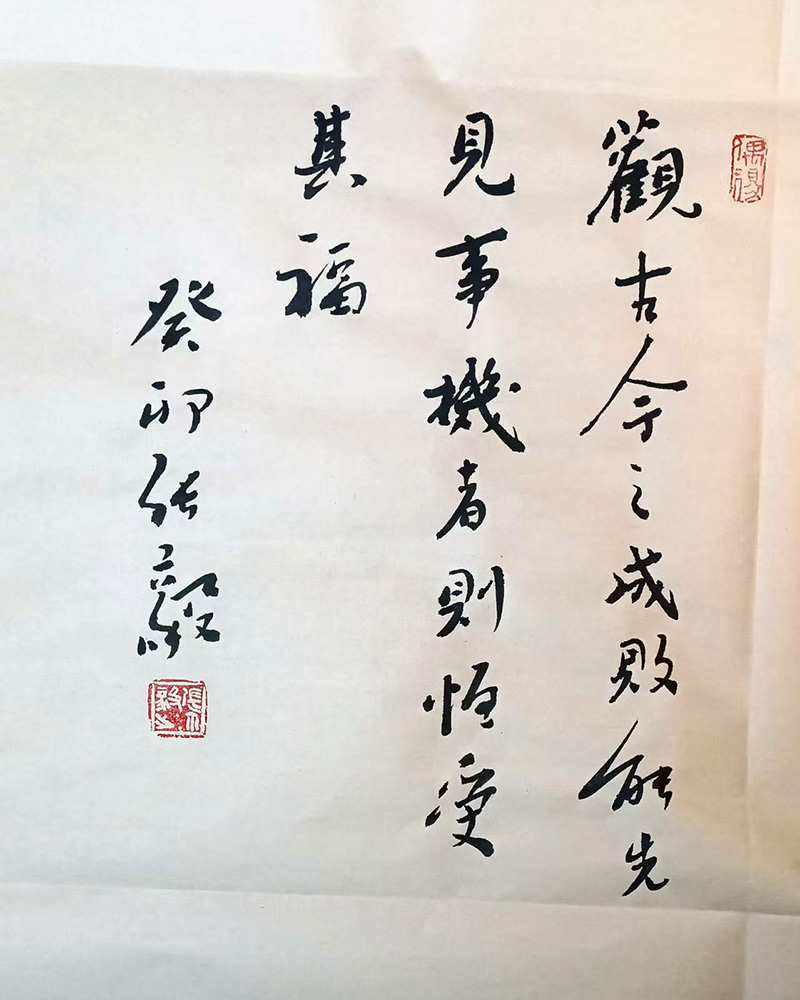 觀古今之成敗能先
見事機者則恒受
其福
癸卯張毅